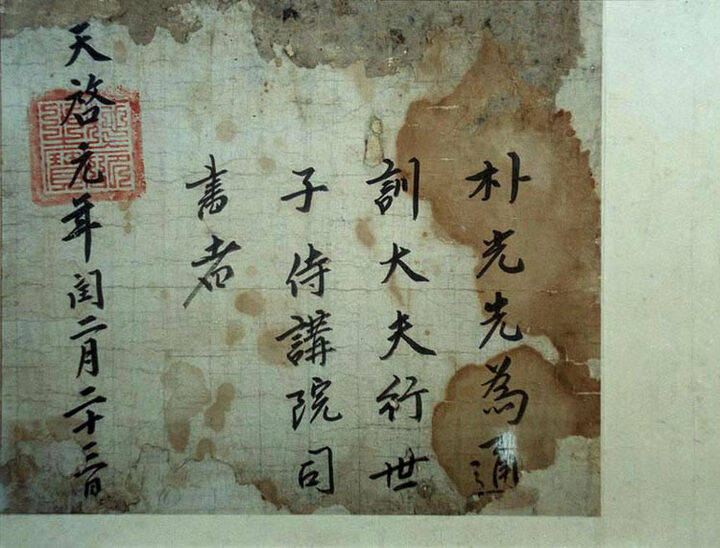 朴光先為通
訓大夫行世
子侍講院司
書者
天啓元年閏二月二十三日